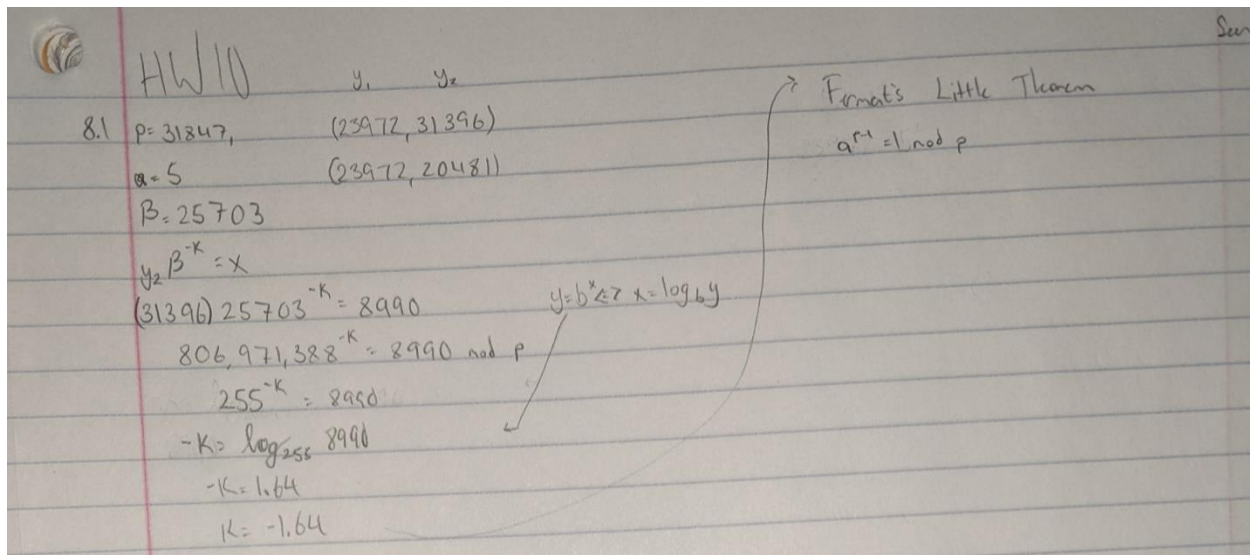 Seen
HW10
y₁ y₂
8.1 p=31847, (23972, 31396)
α=5 (23972, 20481)
β=25703
y₂β^-K = x
(31396) 25703^-K = 8990
806,971,388^-K = 8990 mod p
255^-K = 8990
-K= log₂₅₅ 8990
-K=1.64
K= -1.64
y=b^x <=> x=log_b y
Fermat's Little Theorem
a^p-1 =1 mod p